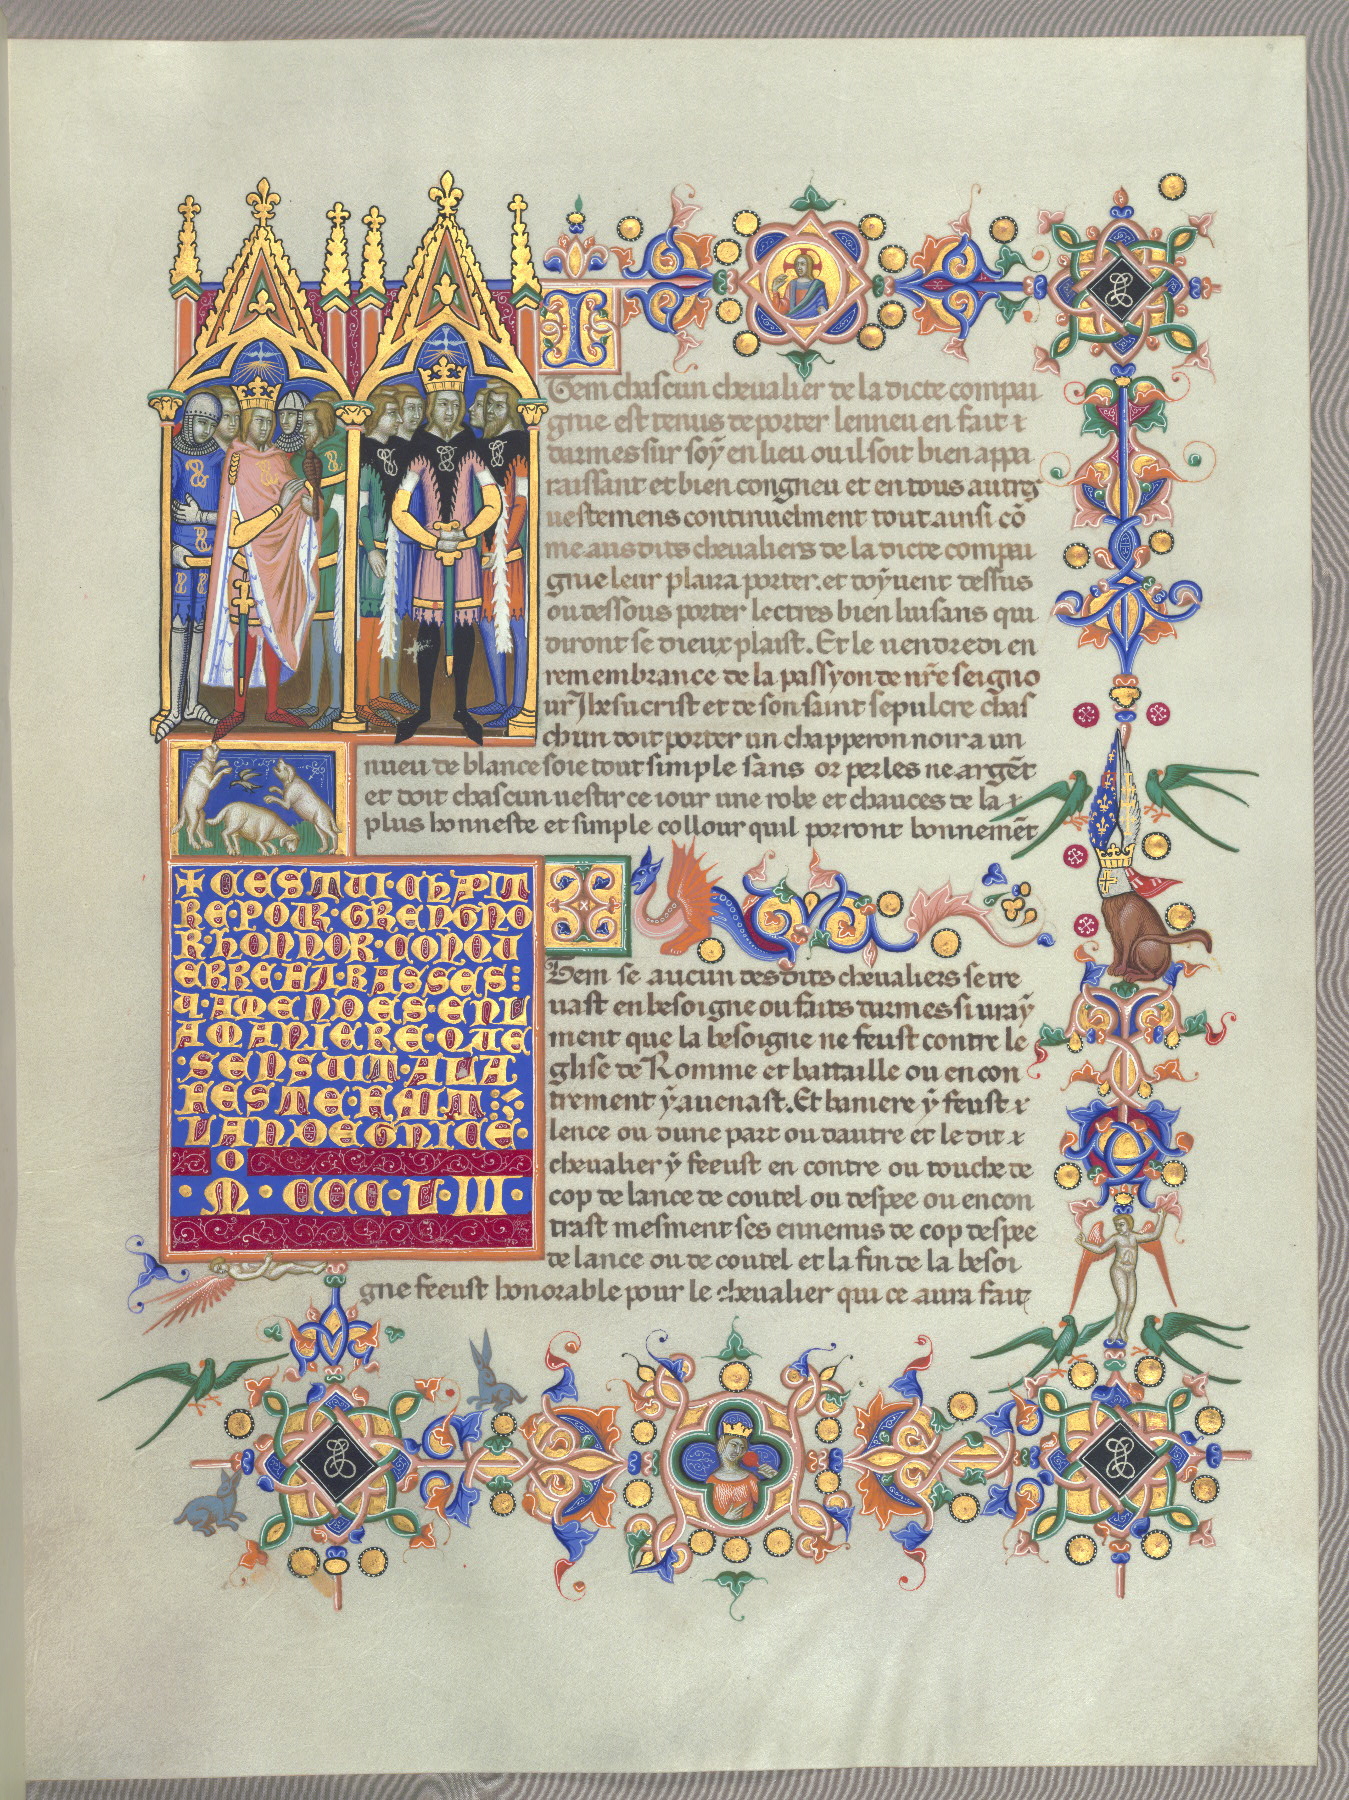 Item chascun chevalier de la dicte compai
gnie est tenus de porter lenneu en fait ⁊
darmes sur soy en lieu ou il soit bien appa
raissant et bien congneu et en tous autres
vestemens continuelment tout ainsi cō
me aus dits chevaliers de la dicte compai
gnie leur plaira porter. et doyvent dessus
ou dessous porter lectres bien luisans qui
diront se dieux plaist. Et le vendredi en
remembrance de la passyon de nr̄e seigno
ur Jhesucrist et de son saint sepulcre chas
chun doit porter un chapperon noir a un
nueu de blance soie tout simple sans or perles ne argēt
et doit chascun vestir ce iour une robe et chauces de la ⁊
plus honneste et simple collour quil porront bonnemēt
✝ CESTUI · CHAPIT
RE · POUR · GREIGNO
R · HONNOR · CONQU
ERRE · AT · BASSES
· AMENDES · EN
AMANIERE · QUE
· SENSUIT · ALA
FESTE
LANDEGNICE ·
O
· M · CCC · LIII ·
Item se aucun des dits chevaliers se tre
vast en besoigne ou faits darmes si vray
ment que la besoigne ne feust contre le
glise de Romme et battaille ou encon
trement y avenast. Et baniere y feust ⁊
lence ou dune part ou dautre et le dit ⁊
chevalier y feeust en contre ou touche de
cop de lance de coutel ou despee ou encon
trast mesment ses ennemis de cop despee
de lance ou de coutel et la fin de la besoi
gne feeust honorable pour le chevalier qui ce aura fait